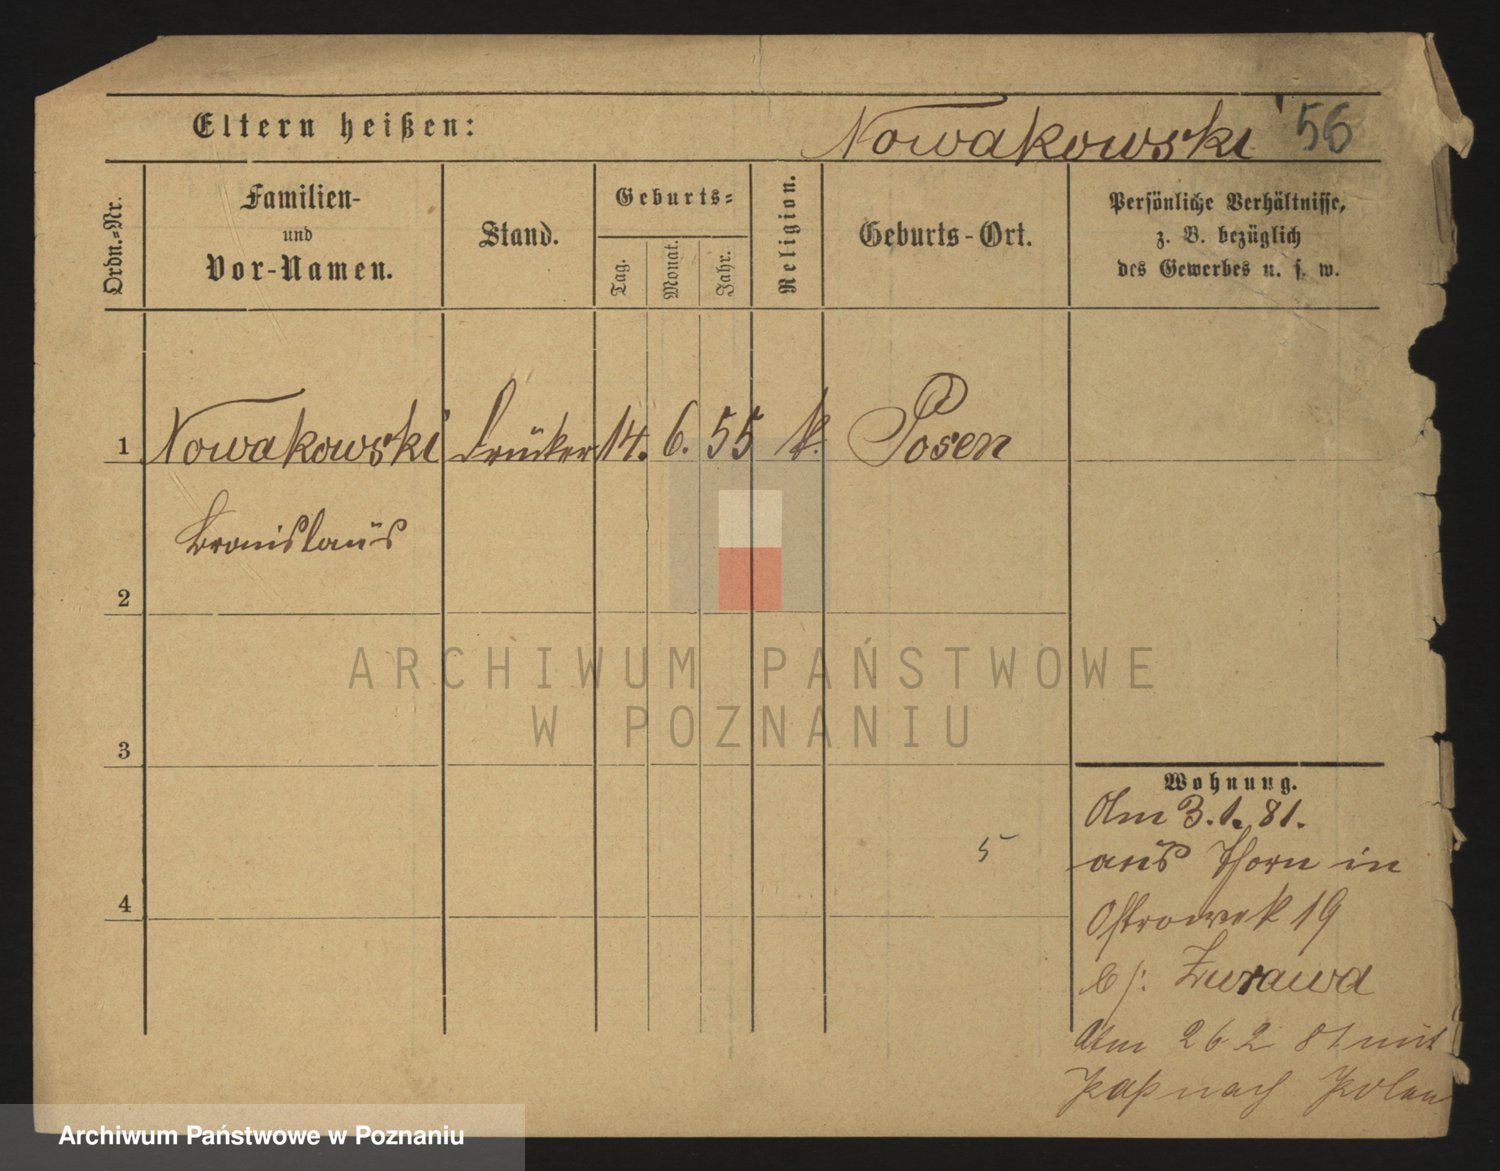 Eltern heißen:
Nowakowski 56
Ordn.-Nr.
Familien-
und
Vor-Namen.
Stand.
Geburts-
Tag.
Monat.
Jahr.
Religion.
Geburts-Ort.
Persönliche Verhältnisse,
z. B. bezüglich
des Gewerbes u. s. w.
1 Nowakowski Drucker 14. 6. 55 k. Posen
Bronislaus
2
3
4
5
Wohnung.
Am 3.1.81.
aus Thorn in
Ostrowek 19
b/: Zurawa
Am 26 2 81 mit
Paß nach Polen
ARCHIWUM PAŃSTWOWE
W POZNANIU
Archiwum Państwowe w Poznaniu